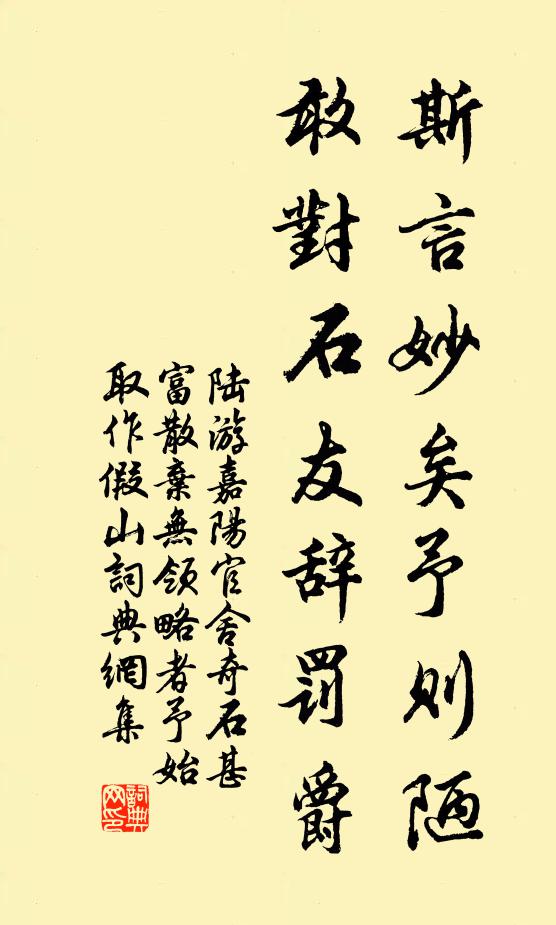 斯言妙矣予则陋
敢對石友辞罰爵
陆游嘉陽官舍奇石甚
富散棄無領略者予始
取作假山詞典網集
詞典
网印